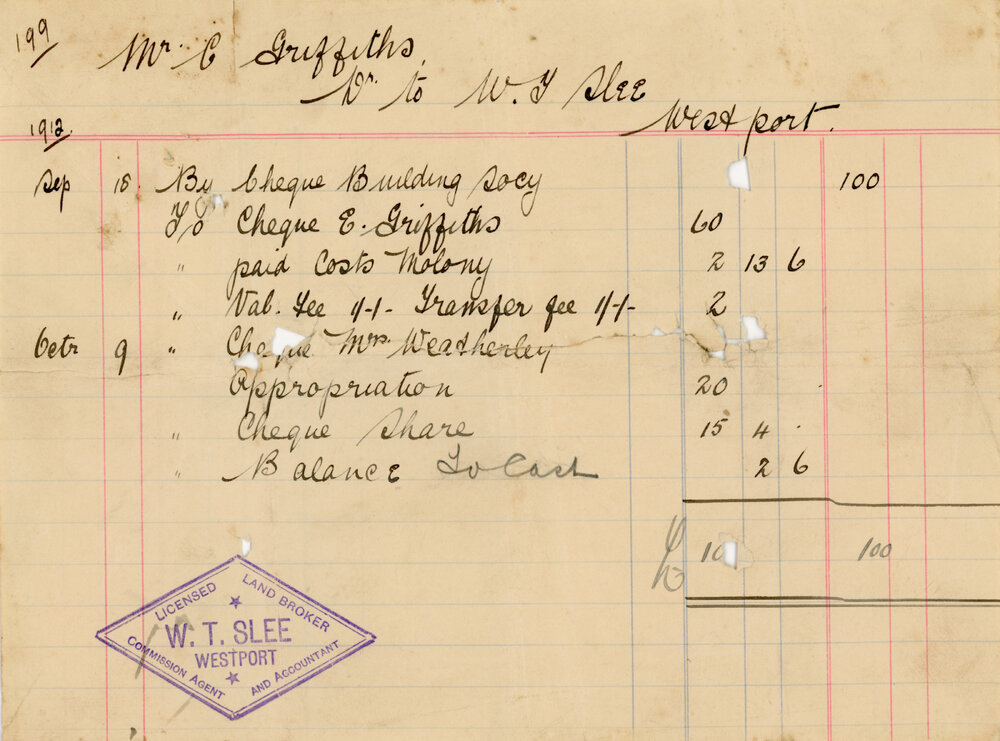 199/
Mr. C Griffiths.
Dr. to W. T Slee
Westport.
1912
Sep 18 By Cheque Building Socy 100
To Cheque E. Griffiths 60
" paid Costs Molony 2 13 6
" Val. Fee 1/1/- Transfer fee 1/1/- 2
Octr 9 " Cheque Mrs. Weatherley
Appropriation 20
" Cheque Share 15 4 .
" Balance To Cash 2 6
£ 100
LICENSED LAND BROKER
W. T. SLEE
WESTPORT
COMMISSION AGENT AND ACCOUNTANT